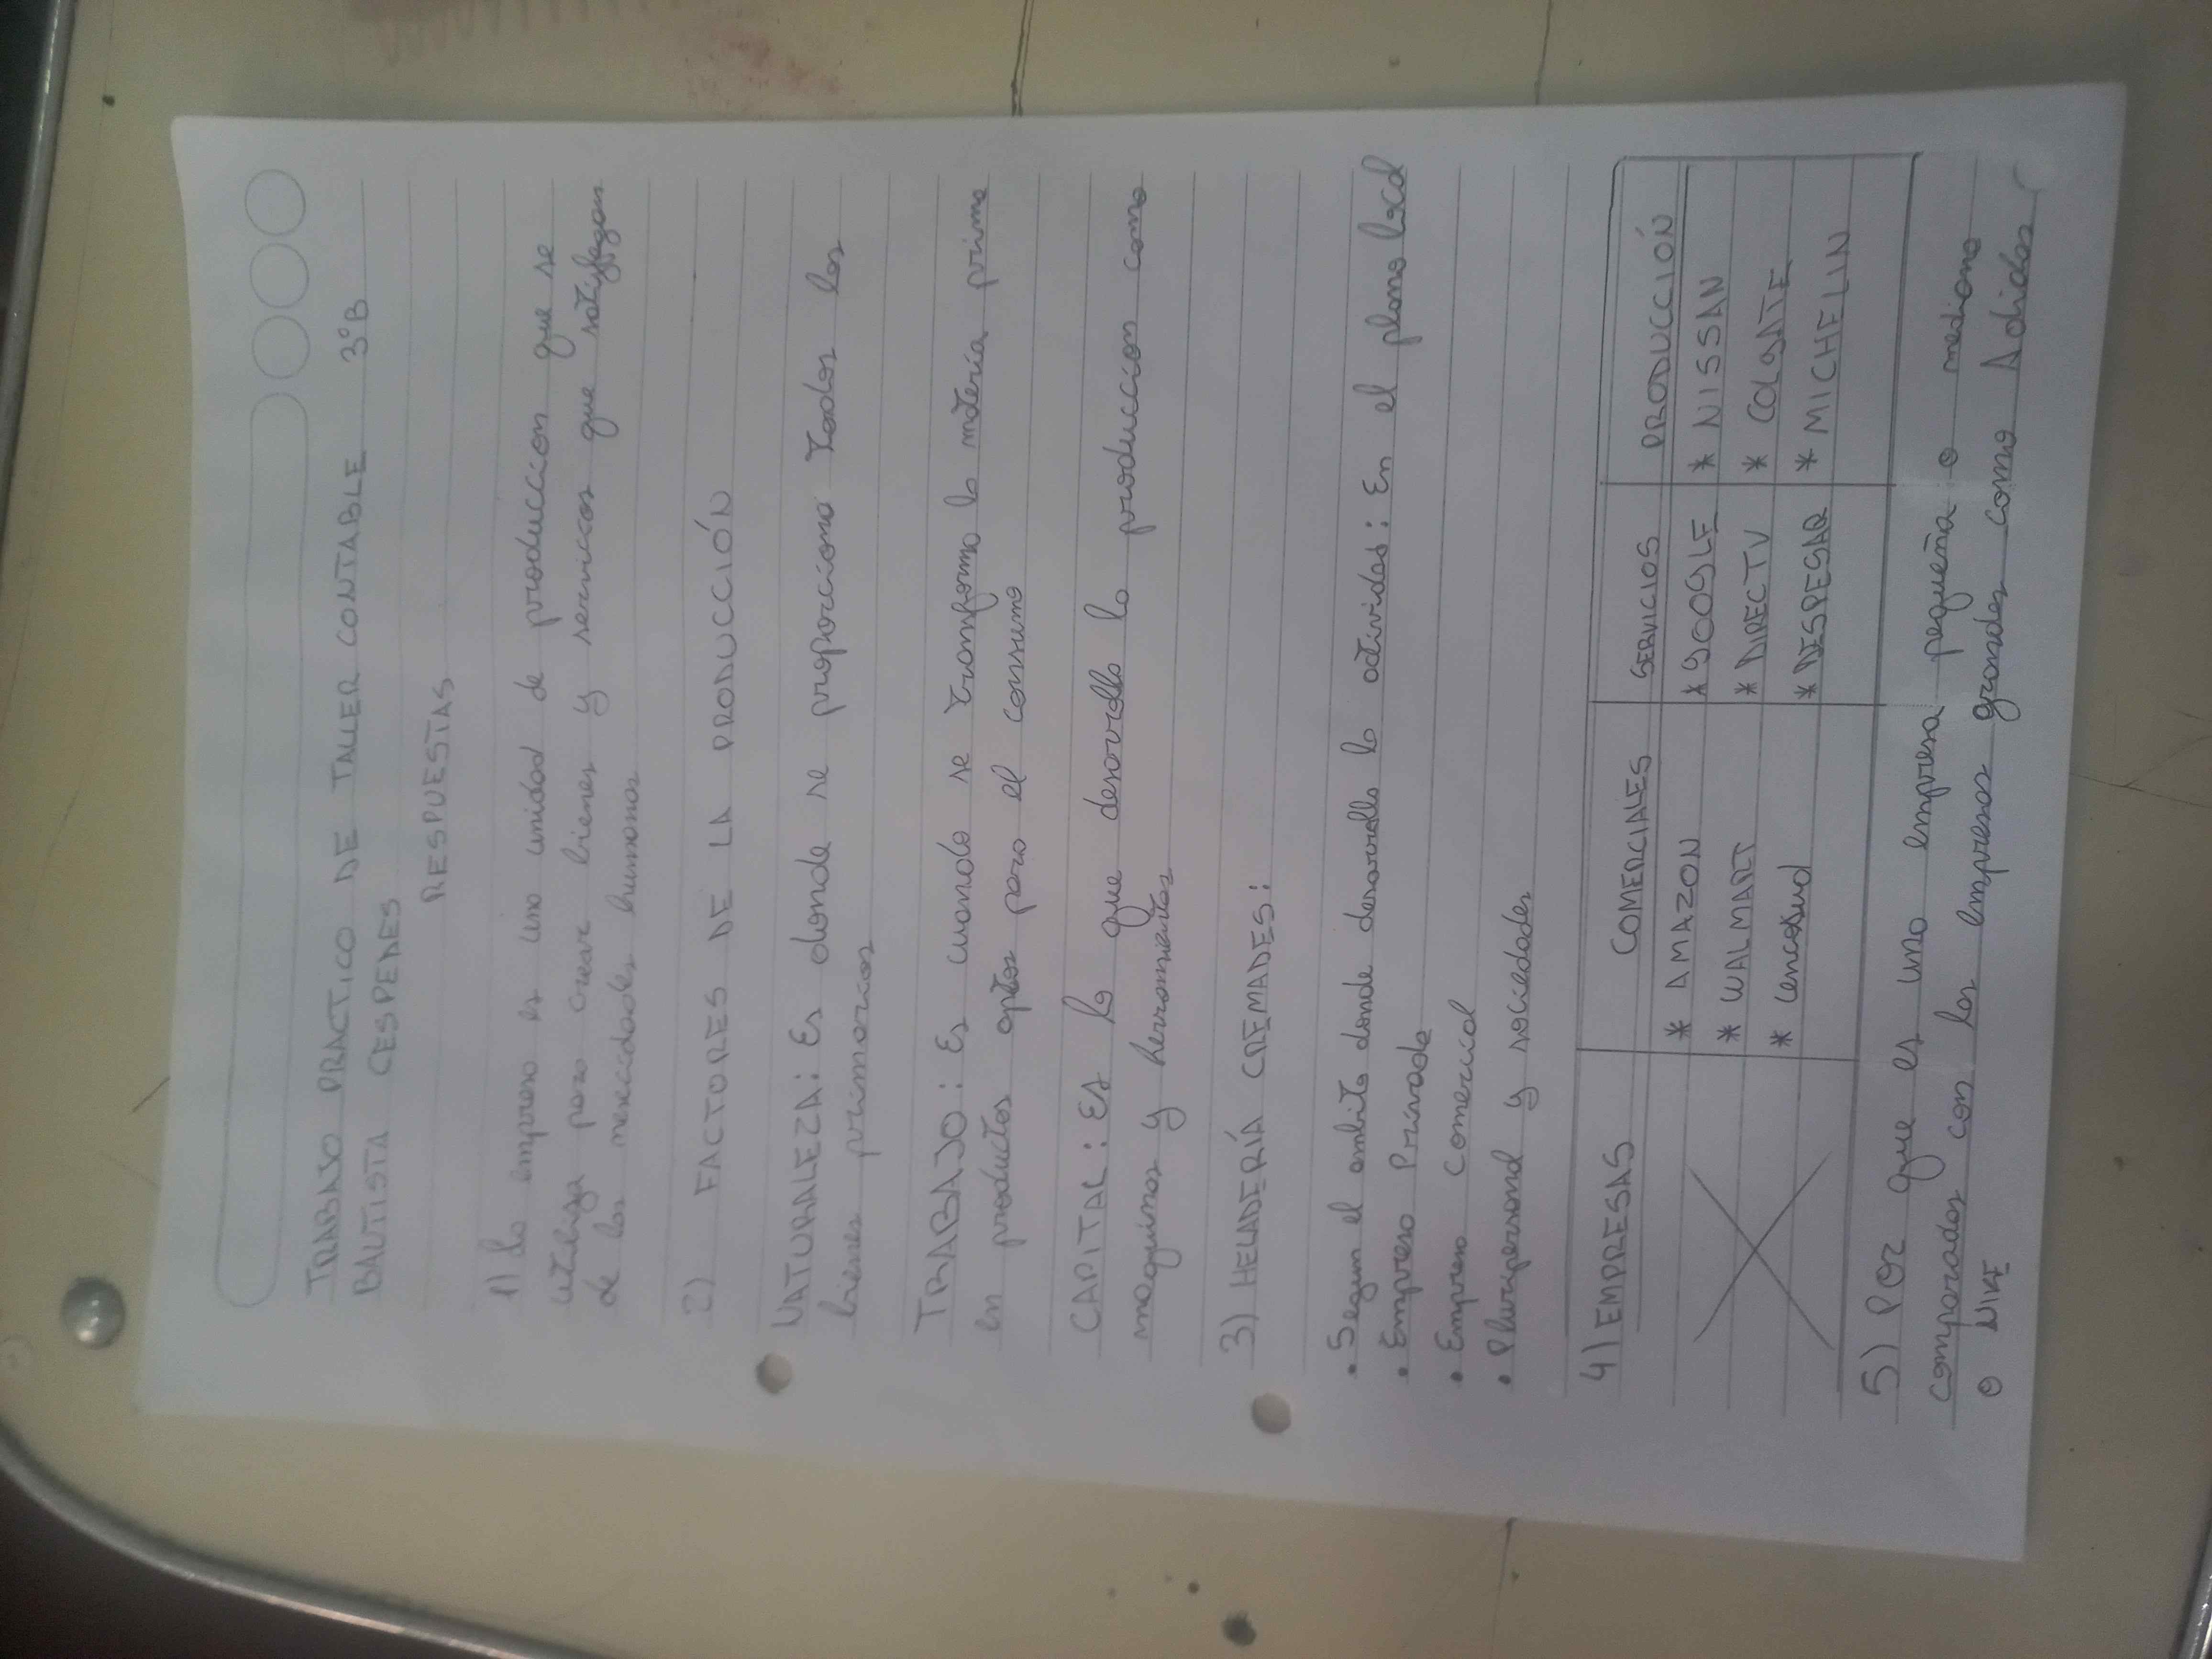 TRABAJO PRACTICO DE TALLER CONTABLE 3°B
BAUTISTA CESPEDES
RESPUESTAS
1) La empresa es una unidad de produccion que se
utiliza para crear bienes y servicos que satisfagan
de las nececidades humanas
2) FACTORES DE LA PRODUCCIÓN
NATURALEZA: Es donde se proporciona todos los
bienes primarios
TRABAJO: Es cuando se transforma la matería prima
en productos aptos para el consumo
CAPITAL: Es la que desarrolla la produccion como
maquinas y herramientas
3) HELADERÍA CREMADES:
• Segun el ambito donde desarrolla la actividad: En el plano local
• Empresa Privada
• Empresa Comercial
• Pluripersonal y sociedades
4) EMPRESAS COMERCIALES SERVICIOS PRODUCCIÓN
* AMAZON * GOOGLE * NISSAN
* WALMART * DIRECTV * COLGATE
* cencosud * DESPEGAR * MICHELIN
5) Por que es una empresa pequeña o mediana
comparadas con las empresas grandes como Adidas
o NIKE